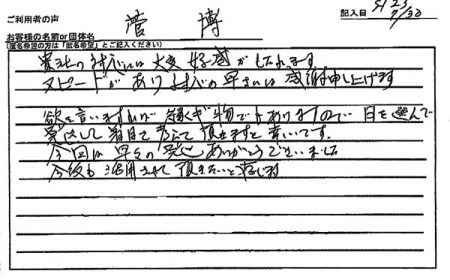 ご利用者の声
記入日 H23 9/30
お客様の名前or団体名
菅 博
(匿名希望の方は「匿名希望」とご記入ください)
貴社の対応には大変好感がもたれます
スピードがあり対応の早さには感謝申し上げます
欲を言いますれば 急ぎ物でありますので 日を選んで
発送して着日で頂きますと幸いです。
今回は早々の発送ありがとうございました
今後も活用させて頂きたいと存じます